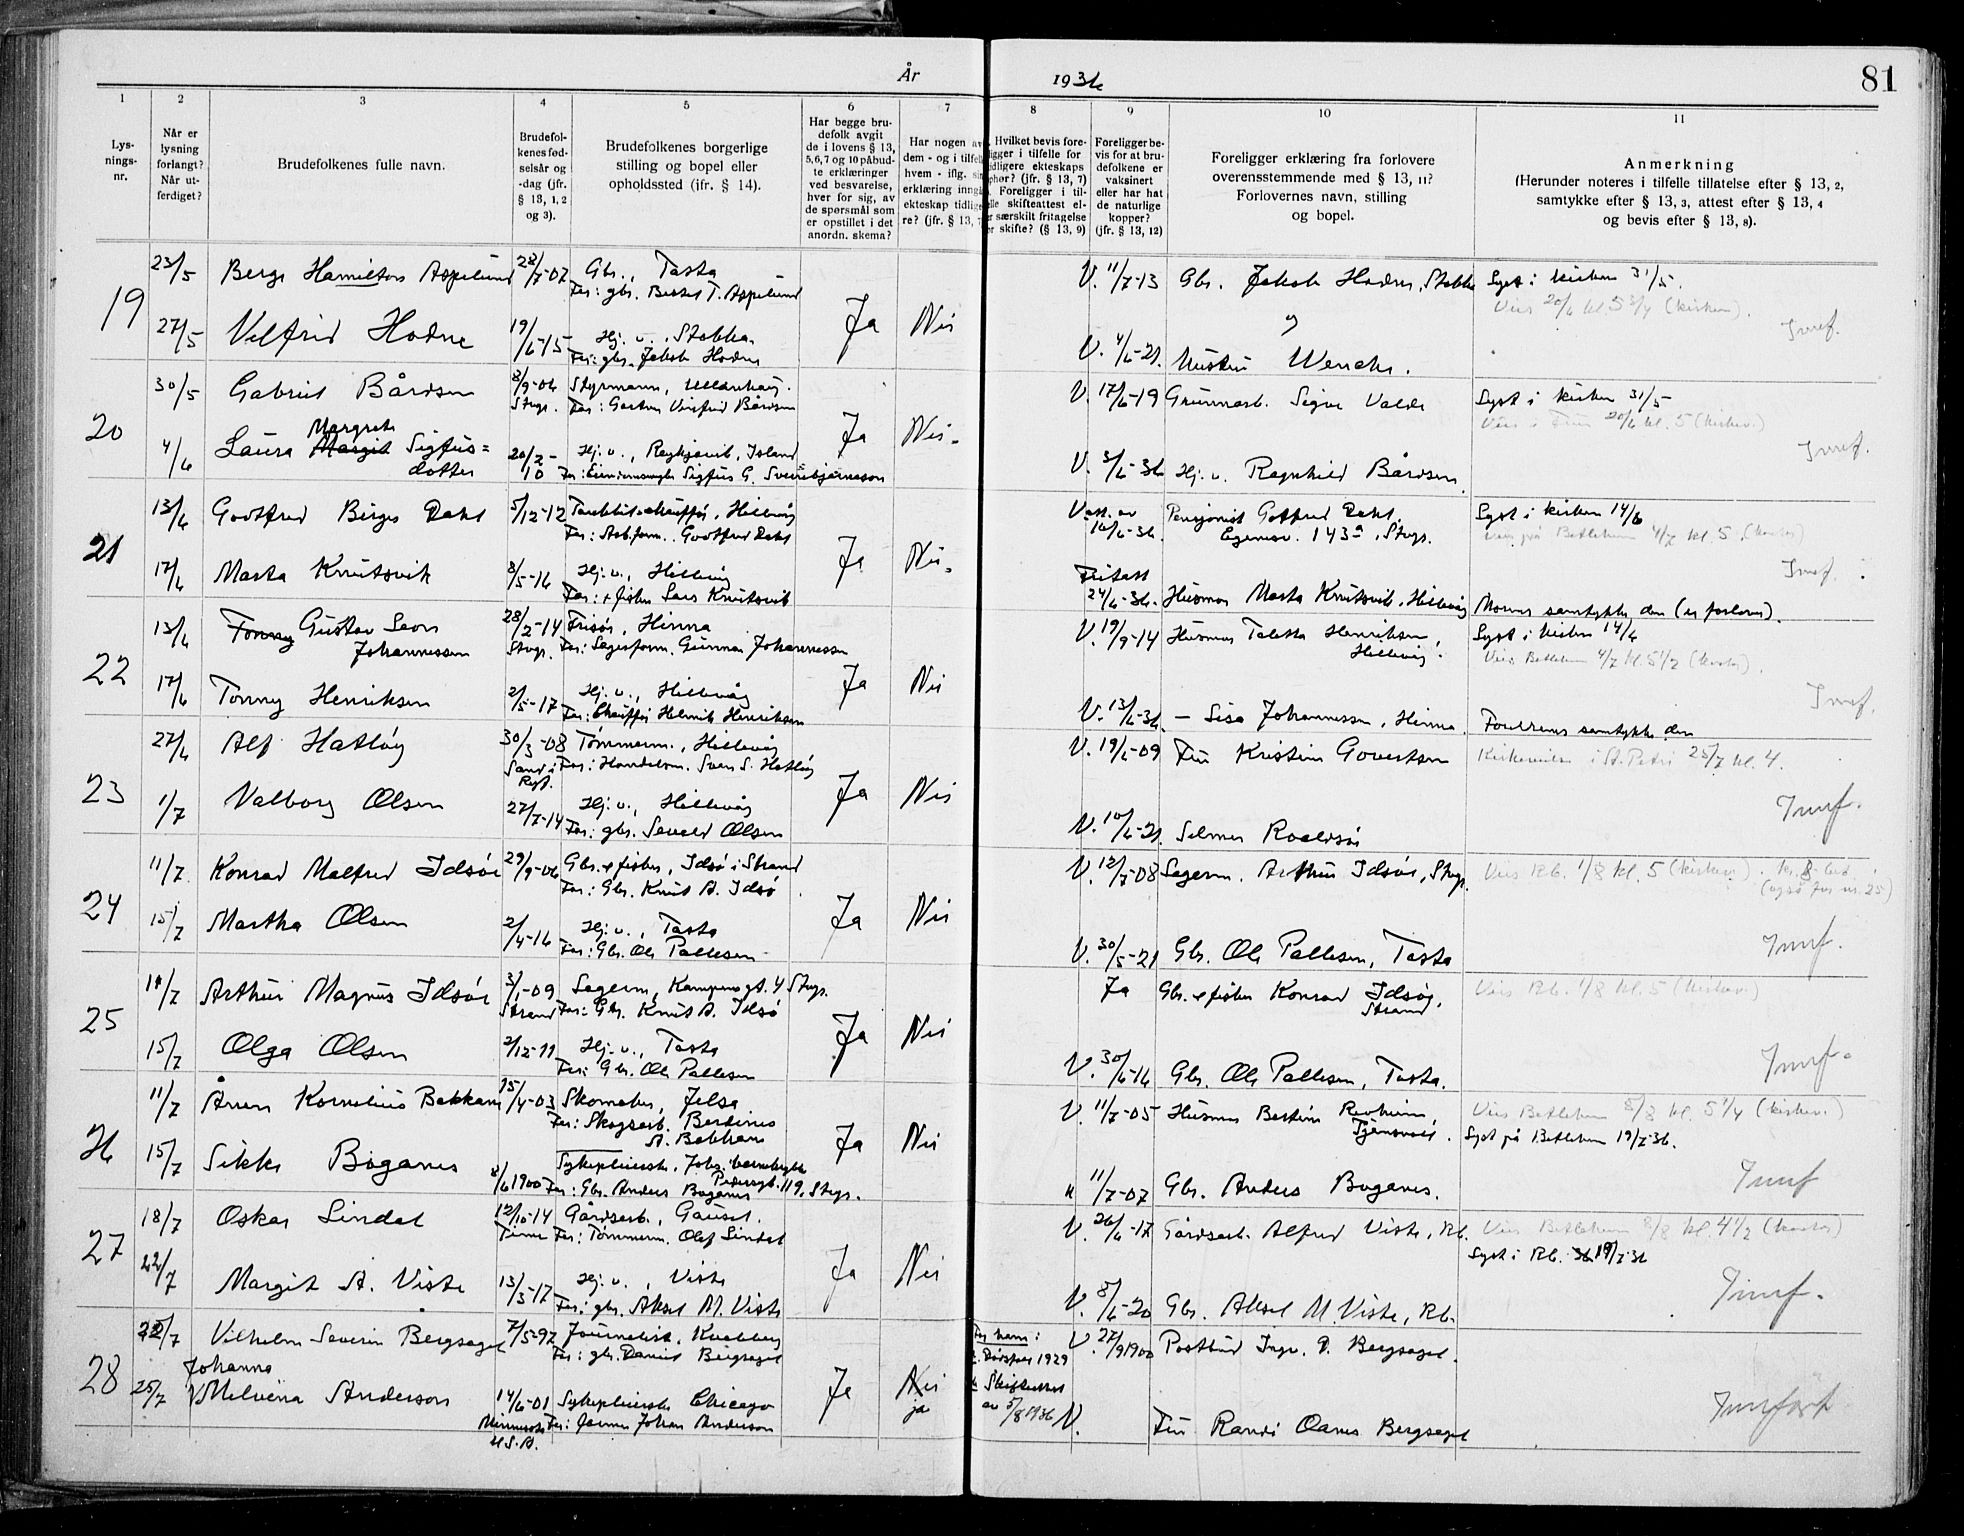 År 1936
81
1 2 3 4 5 6 7 8 9 10 11
Lys-
nings-
nr.
Når er
lysning
forlangt?
Når ut-
ferdiget?
Brudefolkenes fulle navn.
Brudefol-
kenes fød-
selsår og
-dag (jfr.
§ 13, 1, 2
og 3).
Brudefolkenes borgerlige
stilling og bopel eller
opholdssted (jfr. § 14).
Har begge bru-
defolk avgit
de i lovens § 13,
5,6,7 og 10 påbud-
te erklæringer
ved besvarelse,
hver for sig, av
de spørsmål som
er opstillet i det
anordn. skema?
Har nogen av
dem - og i tilfelle
hvem - iflg. sin
erklæring inngått
ekteskap tidlige-
re? (jfr. § 13, 7)
Hvilket bevis fore-
ligger i tilfelle for
tidligere ekteskaps
ophør? (jfr. § 13, 7)
Foreligger i til-
felle skifteattest el-
ler særskilt fritagelse
for skifte? (§ 13, 9)
Foreligger be-
vis for at bru-
defolkene er
vaksinert
eller har hat
de naturlige
kopper?
(jfr. § 13, 12)
Foreligger erklæring fra forlovere
overensstemmende med § 13, 11?
Forlovernes navn, stilling
og bopel.
Anmerkning
(Herunder noteres i tilfelle tillatelse efter § 13, 2,
samtykke efter § 13, 3, attest efter § 13, 4
og bevis efter § 13, 8).
19
23/5 Berge Hamilton Aspelund 28/7-07 Gbr., Tasta
Far: gbr. Bertel T. Aspelund
V. 11/7-13 Gbr. Jakob Hodne, Stokka Lyst i kirken 31/5.
Vies 20/6 kl. 5 3/4 (kirken).
27/5 Velfrid Hodne 19/6-15 Hj. v., Stokka
Far: gbr. Jakob Hodne
Ja Nei
V. 4/6-21. Hustru Wenche.
Innf.
20
30/5 Gabriel Bårdsen 8/9-06 Styrmann,
Stvgr. Far: Gartner Vinfred Bårdsen
V. 17/6-19 Grunnarb. Sigve Valde Lyst i kirken 31/5
20/6 kl. 5 (kirkev.)
4/6 Laura Margit Margrete Sigfus=
dotter
20/2-10 Hj. v., Reykjavik, Island
Far: Eiendomsmegler Sigfus G. Sveinbjørnsson
Ja Nei.
V. 3/6-36 Hj. v. Ragnhild Bårdsen.
Innf.
21
13/6 Godtfred Birger Dahl 5/12-12 Tankbilchauffør, Hillevåg
Far: Arb.form. Godtfred Dahl
V. att. av
10/6-36. Pensjonist Gotfred Dahl,
Egenesv. 143a, Stvgr. Lyst i kirken 14/6
Vies på Betlehem 4/7 kl. 5.
17/6 Marta Knutsvik 8/5-16 Hj. v., Hillevåg
Far: + fisker Lars Knutsvik
Ja Nei.
Fritatt
24/6-36. Husmor Marta Knutsvik, Hillevåg Morens samtykke den (er forlover).
Innf.
22
13/6 Tonny Gustav Leon
Johannessen
28/2-14 Frisør, Hinna
Stvgr. Far: Sagesform. Gunnar Johannessen
V. 19/9-14 Husmor Taletta Henriksen,
Hillevåg. Lyst i kirken 14/6
Vies Betlehem 4/7 kl. 5 1/2
17/6 Tonny Henriksen 2/5-17 Hj. v., Hillevåg
Far: Chauffør Helmik Henriksen
Ja Nei
V. 13/6-36. - Lisa Johannessen, Hinna. Foreldrenes samtykke den
Innf.
23
27/6 Alf Hatløy 30/3-08 Tømmerm., Hillevåg
Sand i
Ryf. Far: Handelsm. Sven S. Hatløy
V. 19/6-09 Fru Kristine Govertsen Kirkevielse i St. Petri 25/7 kl. 4.
1/7 Valborg Olsen 27/7-14 Hj. v., Hillevåg
Far: gbr. Sevald Olsen
Ja Nei
V. 10/6-21. Selmer Roaldsøi
Innf.
24
11/7 Konrad Malfred Idsøe 29/9-06 Gbr. & fisker, Idsø i Strand
Far: Gbr. Knut A. Idsø
V. 12/7-08 Sagerm. Arthur Idsøe, Stvgr. Vies Rb. 1/8 kl. 5 (kirkev.)
(også for nr. 25)
15/7 Martha Olsen 2/4-16 Hj. v., Tasta
Far: Gbr. Ole Pallesen
Ja Nei
V. 30/5-21 Gbr. Ole Pallesen, Tasta
Innf.
25
11/7 Arthur Magnus Idsøe 3/1-09 Sagerm, Kampensgt. 4 Stvgr.
Strand Far: Gbr. Knut A. Idsø
Ja Gbr. & fisker Konrad Idsøe,
Strand Vies Rb. 1/8 kl. 5 (kirkev.)
15/7 Olga Olsen 2/12-11 Hj. v., Tasta
Far: Gbr. Ole Pallesen
Ja Nei
V. 30/6-16 Gbr. Ole Pallesen, Tasta.
Innf.
26
11/7 Årsen Kornelius Bakkane 15/4-03 Skomaker, Jelsa
Far: Skogsarb. Berdines
A. Bakkane
V. 11/7-05 Husmor Bertine Revheim
Tjensvoll. Vies Betlehem 8/8 kl. 5 1/4 (kirkev.)
Lyst på Betlehem 19/7-36.
15/7 Sikke Boganes 8/6 1900 Sykepleierske,
Pedersgt. 119, Stvgr.
Far: Gbr. Anders Boganes
Ja Nei
11/7-07 Gbr. Anders Boganes.
Innf
27
18/7 Oskar Lindal 12/10-14 Gårdsarb., Gausel.
Time Far: Tømmerm. Olaf Lindal
V. 26/6-17 Gårdsarb. Alfred Viste, Rb. Vies Betlehem 8/8 kl. 4 1/2
Lyst i Rb. 19/7-36
22/7 Margit A. Viste 13/3-17 Hj. v., Viste
Far: gbr. Aksel M. Viste
Ja Nei
V. 8/6-20 Gbr. Aksel M Viste, Rb.
Innf.
28
22/7 Vilhelm Severin Bergsagel 7/5-92 Journalist, Kvaleberg
Far: gbr. Daniel Bergsagel
For ham:
Dødsfall 1929
V. 27/9 1900 Postbud Ingv. D. Bergsagel.
25/7 Johanna
Melvina Anderson 14/6-01 Sykepleierske Chicago
Minnesota
U.S.A. Far: Johan Anderson
Ja Nei
ja
Skifteattest
av 5/8 1936 V.
Fru Randi Oanes Bergsagel
Innført